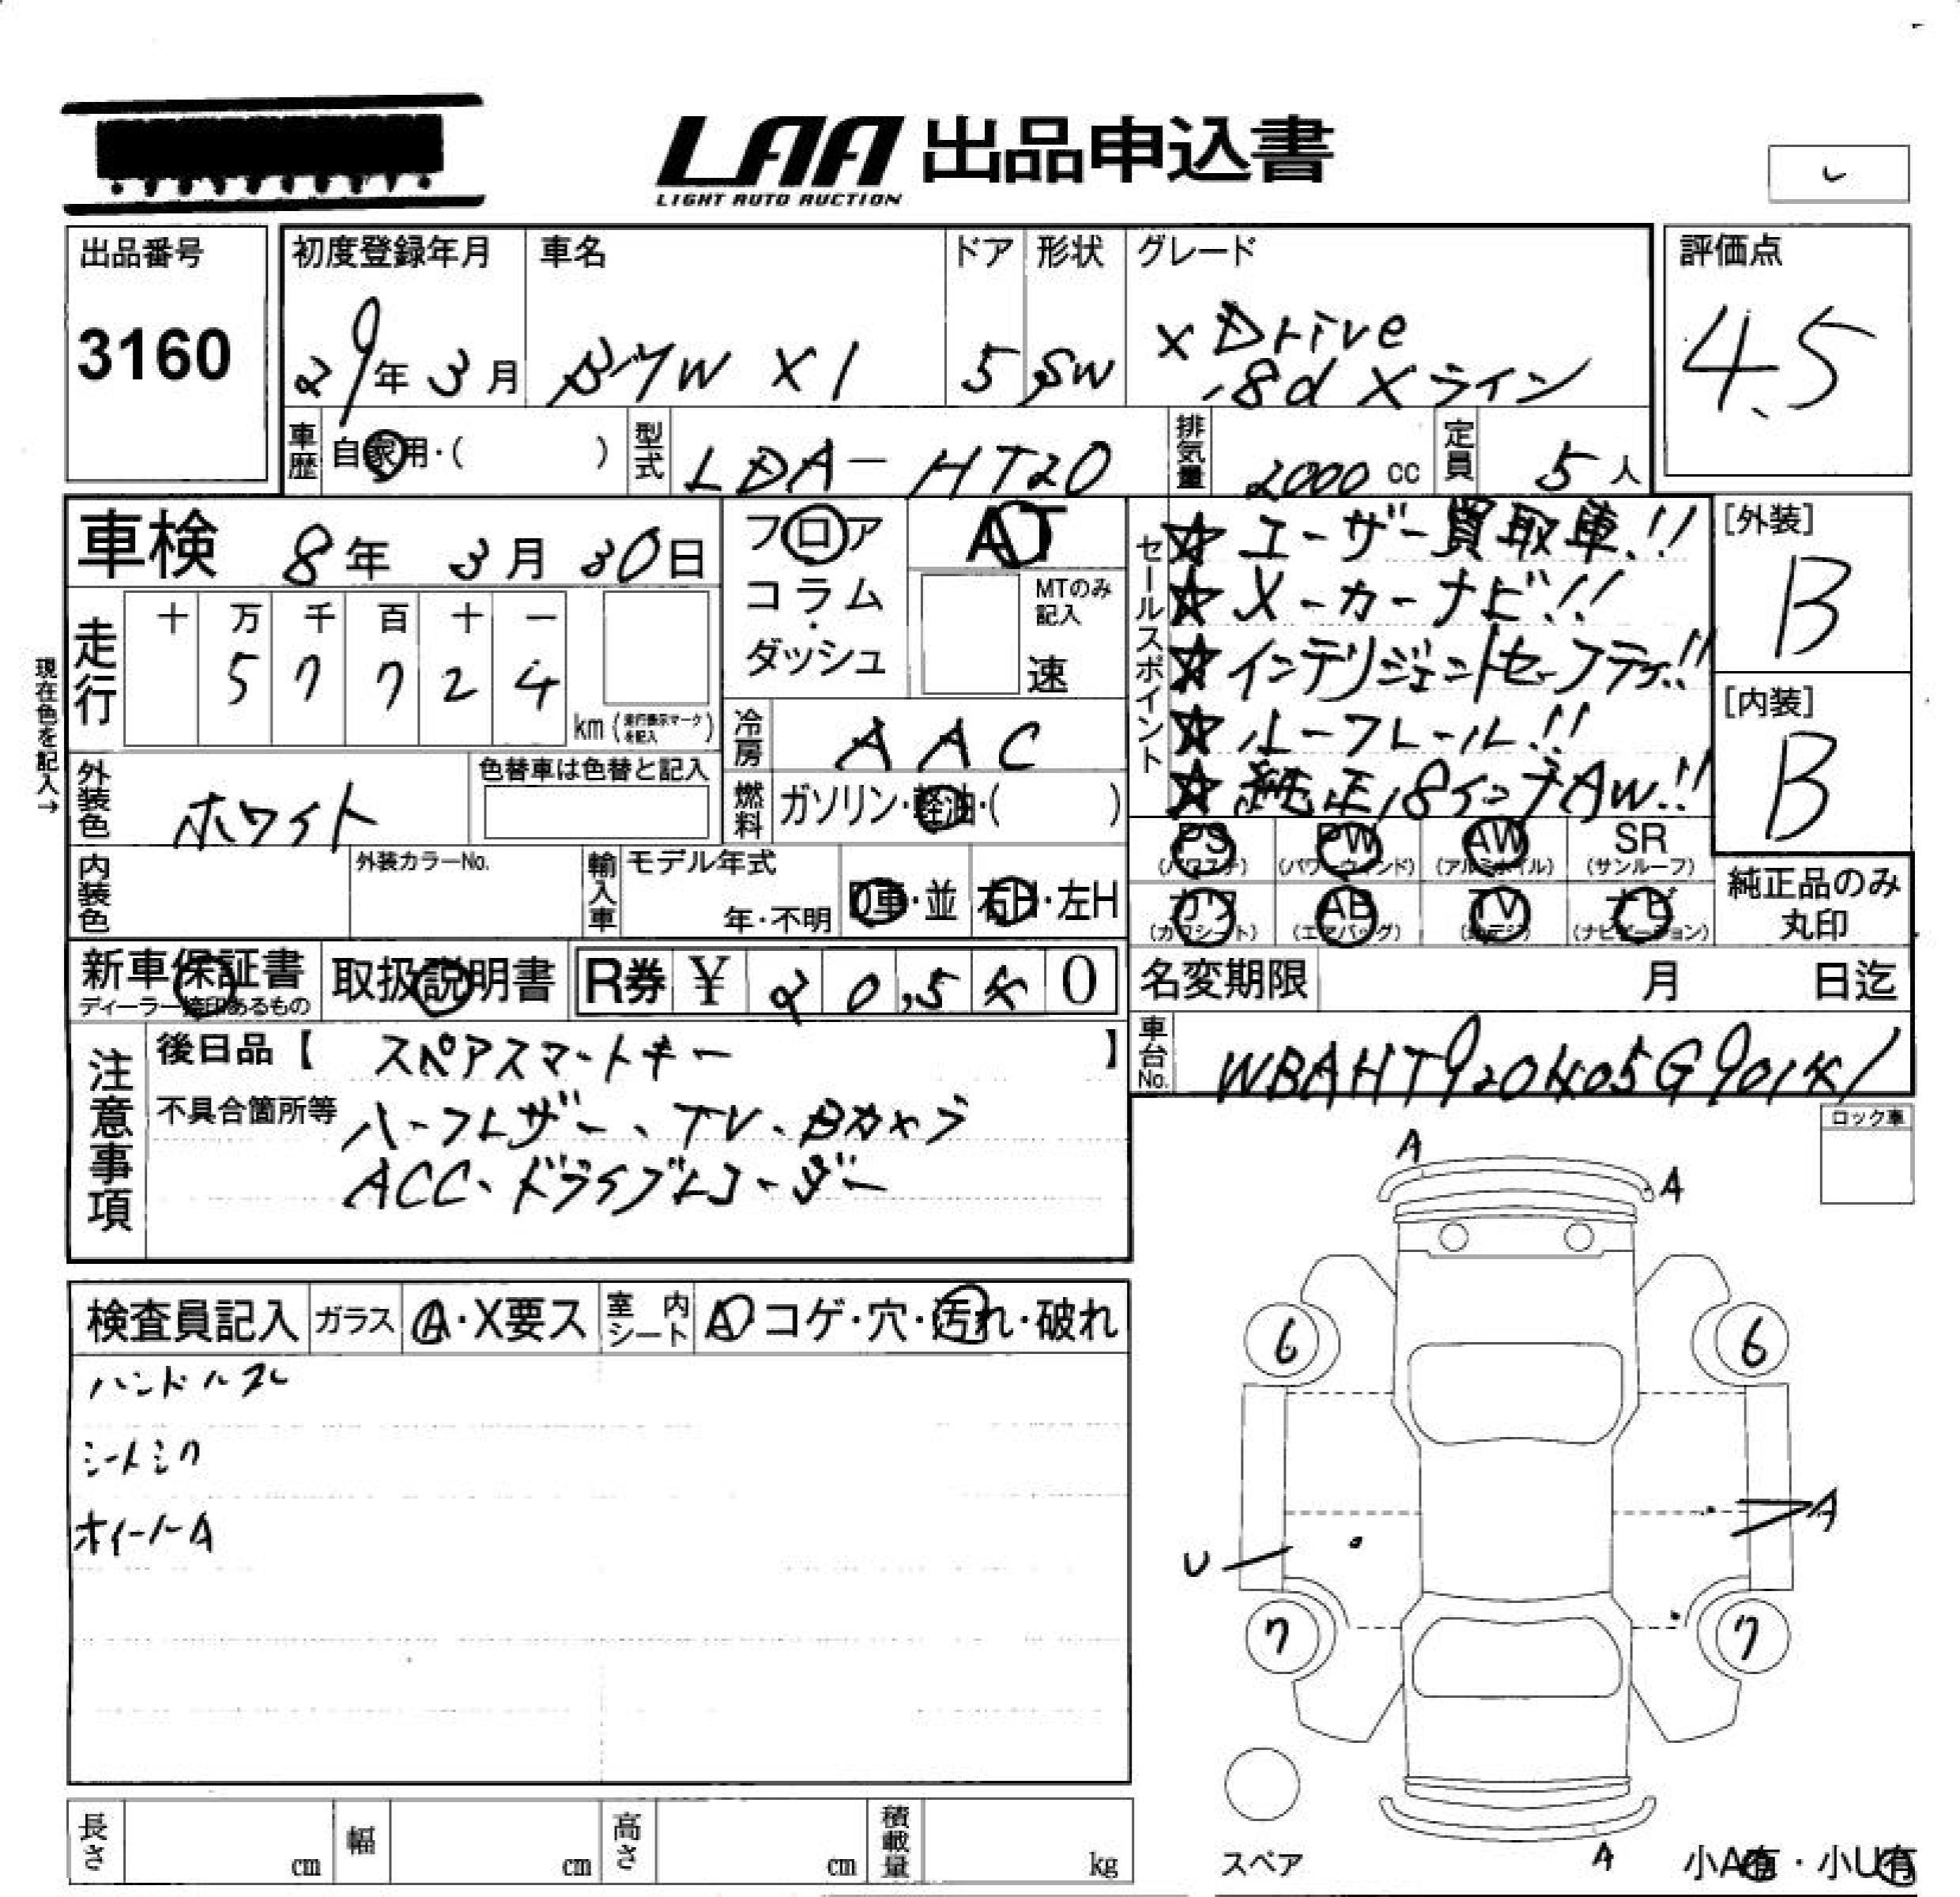 LAA 出品申込書
LIGHT AUTO AUCTION
出品番号
3160
初度登録年月
29年3月
車名
BMW X1
ドア
5
形状
SW
グレード
xDrive
18d Xライン
評価点
4.5
車歴
自家用・( )
型式
LDA-HT20
排気量
2000 cc
定員
5人
車検 8年 3月 30日
走行
十 万 千 百 十 一
5 7 7 2 4
km (走行表示マークを記入)
現在色を記入→
フロア
コラム
・
ダッシュ
AT
MTのみ
記入
速
冷房
AAC
燃料
ガソリン・軽油・( )
外装色
ホワイト
色替車は色替と記入
内装色
外装カラーNo.
輸入車
モデル年式
年・不明
D車・並
右H・左H
セールスポイント
☆ユーザー買取車!!
☆メーカーナビ!!
☆インテリジェントセーフティ!!
☆ルーフレール!!
☆純正18インチAW!!
PS (パワステ)
PW (パワーウィンド)
AW (アルミホイル)
SR (サンルーフ)
カワ (カワシート)
AB (エアバッグ)
TV (地デジ)
ナビ (ナビゲーション)
純正品のみ
丸印
[外装]
B
[内装]
B
新車保証書
ディーラー捺印あるもの
取扱説明書
R券 ¥ 20,540
名変期限 月 日迄
車台No.
WBAHT920405G90141
注意事項
後日品【 スペアスマートキー 】
不具合箇所等 ハーフレザー、TV、Bカメラ
ACC、ドライブレコーダー
ロック車
検査員記入
ガラス
A・X要ス
室内シート
A コゲ・穴・汚れ・破れ
ハンドルスレ
シートシワ
ホイールA
A
A
6
6
A
U
7
7
スペア
A
小A有・小U有
長さ cm
幅 cm
高さ cm
積載量 kg